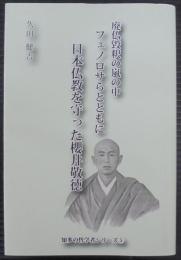 廃仏毀釈の嵐の中
フェノロサらとともに
日本仏教を守った櫻井敬徳
知多の哲学者シリーズ5